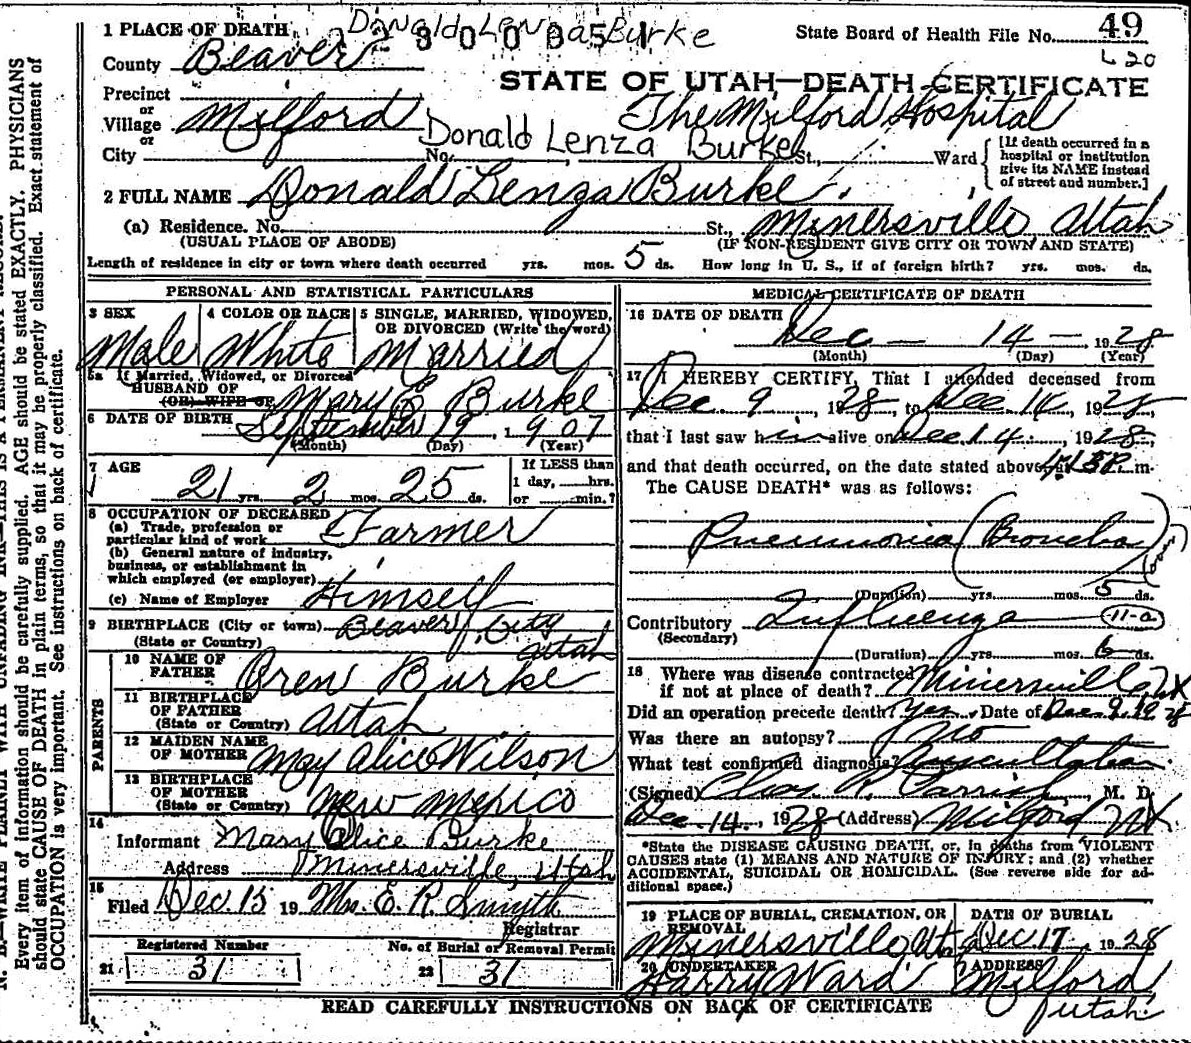 Donald Lenza Burke
1 PLACE OF DEATH
State Board of Health File No. 49
L 20
County Beaver
STATE OF UTAH—DEATH CERTIFICATE
Precinct
or
Village Milford
The Milford Hospital
or
Donald Lenza Burke
City No. St., Ward
[If death occurred in a hospital or institution give its NAME instead of street and number.]
2 FULL NAME Donald Lenza Burke
(a) Residence. No. St., Minersville Utah
(USUAL PLACE OF ABODE) (IF NON-RESIDENT GIVE CITY OR TOWN AND STATE)
Length of residence in city or town where death occurred yrs. mos. 5 ds. How long in U. S., if of foreign birth? yrs. mos. ds.
PERSONAL AND STATISTICAL PARTICULARS
3 SEX
Male
4 COLOR OR RACE
White
5 SINGLE, MARRIED, WIDOWED, OR DIVORCED (Write the word)
Married
5a If Married, Widowed, or Divorced
HUSBAND OF
(OR) WIFE OF Mary E Burke
6 DATE OF BIRTH September 19, 1907
(Month) (Day) (Year)
7 AGE
21 yrs. 2 mos. 25 ds.
If LESS than
1 day, hrs.
or min.?
8 OCCUPATION OF DECEASED
(a) Trade, profession or
particular kind of work Farmer
(b) General nature of industry,
business, or establishment in
which employed (or employer)
(c) Name of Employer Himself
9 BIRTHPLACE (City or town) Beaver City
(State or Country) Utah
PARENTS
10 NAME OF
FATHER Oren Burke
11 BIRTHPLACE
OF FATHER
(State or Country) Utah
12 MAIDEN NAME
OF MOTHER May Alice Wilson
13 BIRTHPLACE
OF MOTHER
(State or Country) New Mexico
14
Informant Mary Alice Burke
Address Minersville, Utah
15
Filed Dec. 15 19 Mrs. E. R. Smyth
Registrar
Registered Number No. of Burial or Removal Permit
21 31 22 31
MEDICAL CERTIFICATE OF DEATH
16 DATE OF DEATH
Dec — 14 — 1928
(Month) (Day) (Year)
17 I HEREBY CERTIFY, That I attended deceased from
Dec. 9, 1928, to Dec 14, 1928,
that I last saw him alive on Dec 14, 1928,
and that death occurred, on the date stated above, at m.
The CAUSE DEATH* was as follows:
Pneumonia (Broncho)
(Duration) yrs. mos. 5 ds.
Contributory Influenza 11-a
(Secondary)
(Duration) yrs. mos. 6 ds.
18 Where was disease contracted
if not at place of death? Minersville, Ut
Did an operation precede death? Yes. Date of Dec 9, 1928
Was there an autopsy? No
What test confirmed diagnosis? Auscultation
(Signed) Chas. Parrish, M. D.
Dec. 14, 1928 (Address) Milford Ut.
*State the DISEASE CAUSING DEATH, or, in deaths from VIOLENT
CAUSES state (1) MEANS AND NATURE OF INJURY; and (2) whether
ACCIDENTAL, SUICIDAL OR HOMICIDAL. (See reverse side for ad-
ditional space.)
19 PLACE OF BURIAL, CREMATION, OR
REMOVAL
Minersville Uta
DATE OF BURIAL
Dec 17, 1928
20 UNDERTAKER
Harry Ward
ADDRESS
Milford
Utah
READ CAREFULLY INSTRUCTIONS ON BACK OF CERTIFICATE
N. B.—WRITE PLAINLY WITH UNFADING INK—THIS IS A PERMANENT RECORD.
Every item of information should be carefully supplied. AGE should be stated EXACTLY. PHYSICIANS
should state CAUSE OF DEATH in plain terms, so that it may be properly classified. Exact statement of
OCCUPATION is very important. See instructions on back of certificate.